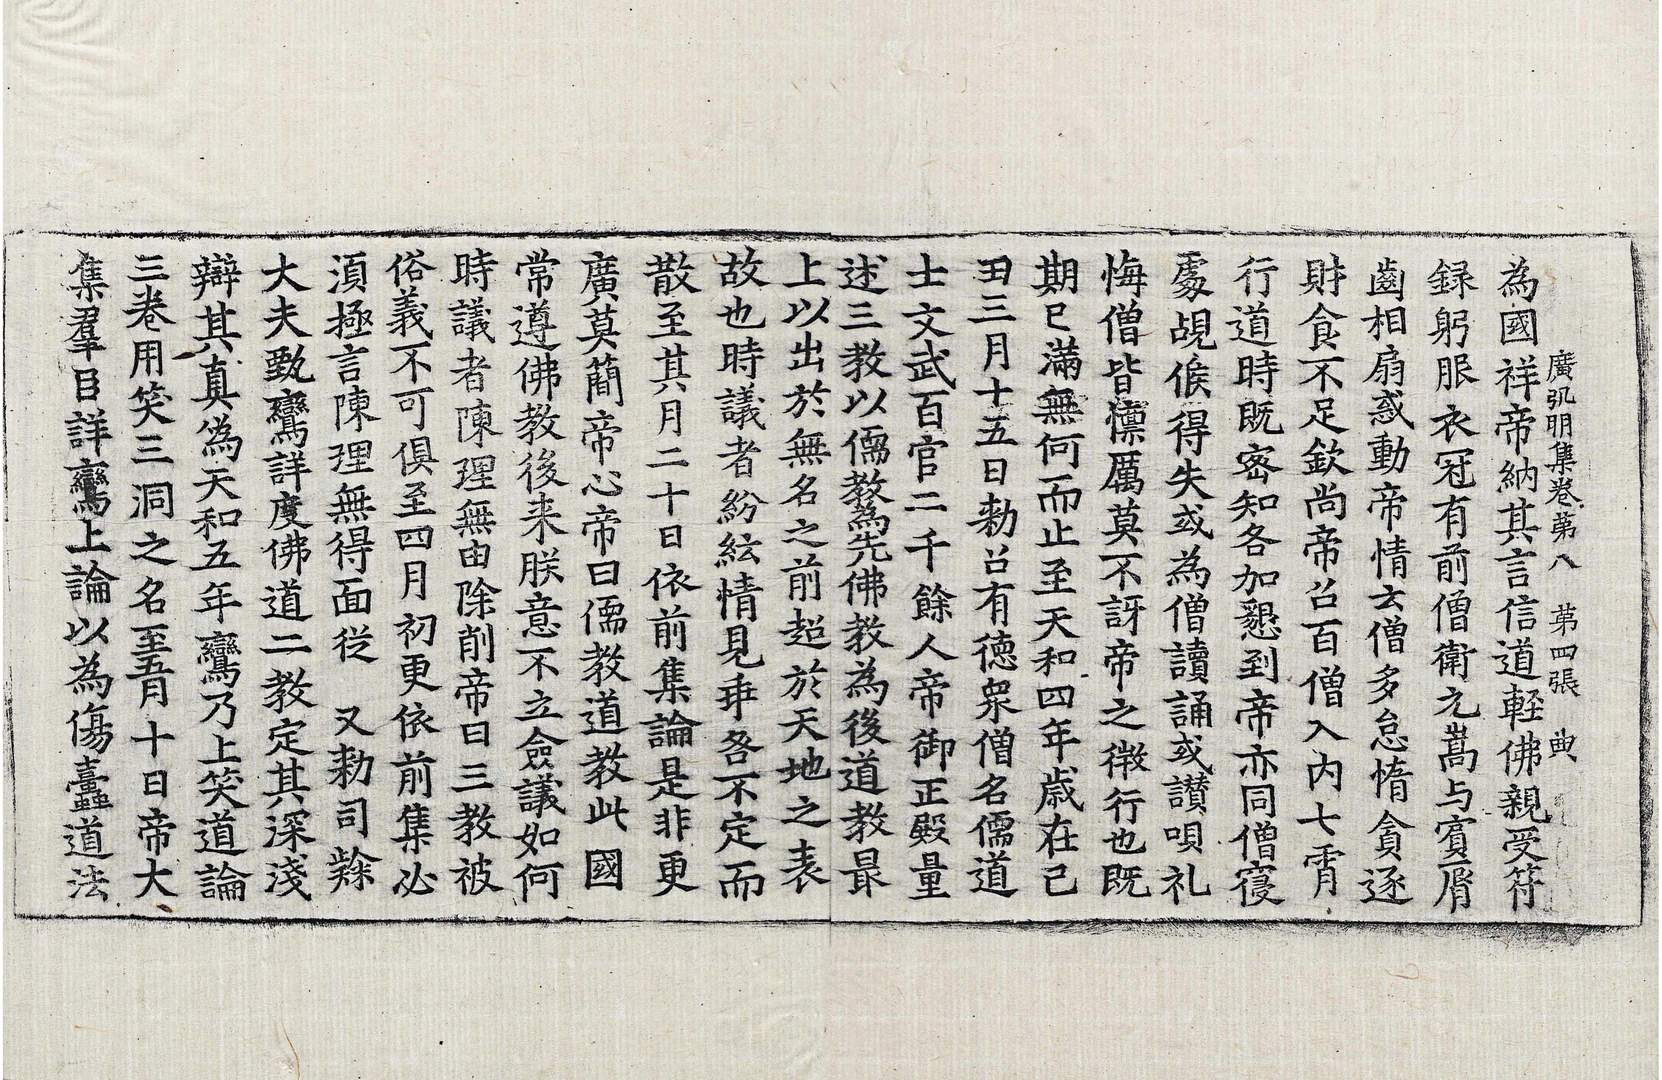 廣弘明集卷第八　第四張　典
為國祥帝納其言信道輕佛親受符
録躬服衣冠有前僧衛元嵩与賓脣
齒相扇惑動帝情云僧多怠惰貪逐
財食不足欽尚帝召百僧入內七宵
行道時既密知各加懇到帝亦同僧寢
處覘候得失或為僧讀誦或讃唄礼
悔僧皆懍厲莫不訝帝之徵行也既
期已滿無何而止至天和四年歲在己
丑三月十五日勑召有德衆僧名儒道
士文武百官二千餘人帝御正殿量
述三教以儒教為先佛教為後道教最
上以出於無名之前超於天地之表
故也時議者紛紜情見乖咎不定而
散至其月二十日依前集論是非更
廣莫簡帝心帝曰儒教道教此國
常遵佛教後来朕意不立僉議如何
時議者陳理無由除削帝曰三教被
俗義不可俱至四月初更依前集必
湏極言陳理無得面從　又勑司隸
大夫甄鸞詳度佛道二教定其深淺
辯其真為天和五年鸞乃上笑道論
三卷用笑三洞之名至五月十日帝大
集羣目詳鸞上論以為傷蠹道法